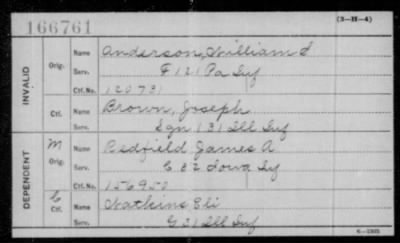 166761
(3-H-4)
INVALID
Orig. Name Anderson, William S
Serv. F 121 Pa Inf
Ctf. No. 120731
Ctf. Name Brown, Joseph
Serv. Sgn 131 Ill Inf
DEPENDENT
M Orig. Name Redfield James A
Serv. C 32 Iowa Inf
Ctf. No. 156950
C Ctf. Name Watkins, Eli
Serv. G 31 Ill Inf